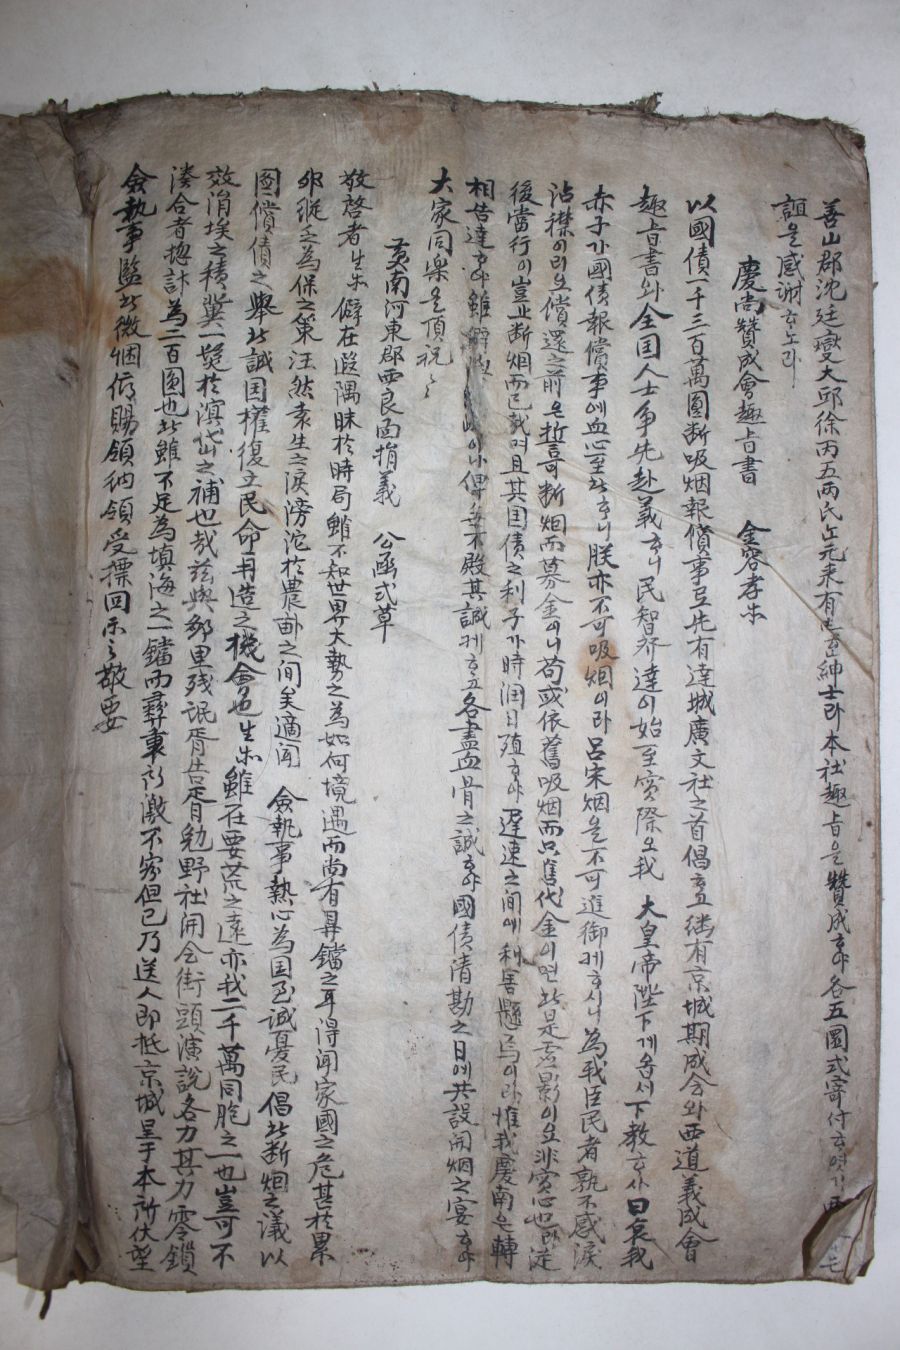 善山郡沈廷燮大邱徐丙五兩氏난元来有志한紳士라本社趣旨을贊成하야各五圜式寄付하엿기
誼을感謝하노라
慶尚贊成會趣旨書 金容孝等
以國債一千三百萬圓断吸烟報償事로先有達城廣文社之首倡하고継有京城期成会와西道義成會
趣旨書와全国人士争先赴義하니民智發達이始至實際오我 大皇帝陛下게옵서下教하사曰哀我
赤子가國債報償事에血心至此하니朕亦不可吸烟이라呂宋烟을不可進御케하시니為我臣民者孰不感淚
沾襟이리오償還之前은誓奇断烟而募金이니苟或依舊吸烟而只售代金이면此是虚影이오非實心也라從
後當行이豈止断烟而已哉며且其国債之利子가時潤日殖하야遲速之間에利害懸焉이라惟我慶南은轉
相告達하야雖 이나偶 不殿其誠케하고各盡血骨之誠하야國債清勘之日에共設開烟之宴하야
大家同楽을頂祝々
黄南河東郡西良面捐義 公函式草
敬啓者生等僻在遐隅昧於時局雖不知世界大勢之為如何境遇而尚有鼻鐺之耳得聞家國之危甚於累
卵縦乏為保之策汪然哀生之淚滂沱於農畝之間矣適聞 僉執事熱心為国至誠憂民倡此断烟之議以
圖償債之舉此誠国權復立民命再造之機會也生等雖在要荒之遠亦我二千萬同胞之一也豈可不
效涓埃之積冀一髪於溟岱之補也哉玆與鄉里残氓胥告胥勉野社開会街頭演説各力其力零鎖
湊合者揔計為二百圓也此雖不足為填海之一鐺而彛衷所激不容但已乃送人即抵京城呈于本所伏望
僉執事監此微悃俯賜領納領受摽回示之敬要